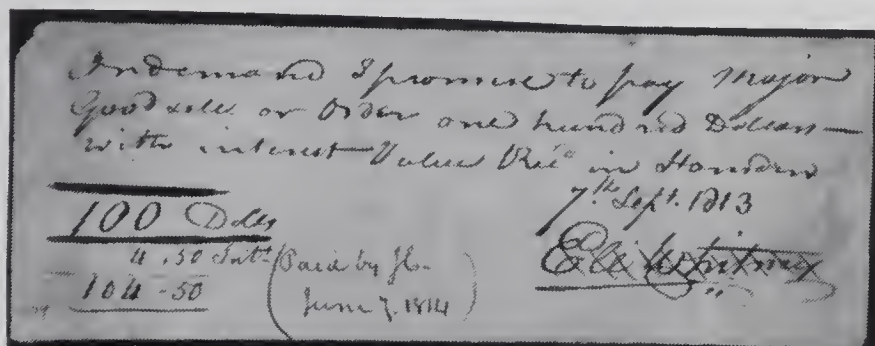 On demand I promise to pay Major
Goodsell or Order one hundred Dollars —
with interest Value Recd in Hamden
7th Sept. 1813
100 Dolls
4.50 Intt
104-50
(Paid by
June 7. 1814)
Eli Whitney